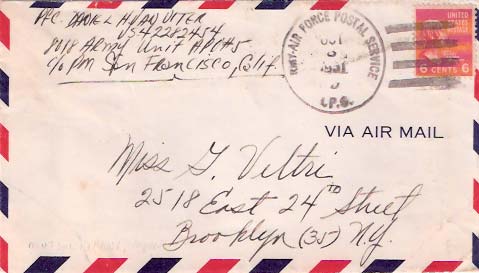 PFC. DANIEL H VAN UTER
US42282454
8078 Army Unit APO#5
c/o PM San Francisco, Calif.
ARMY-AIR FORCE POSTAL SERVICE
1951
A.P.O.
UNITED STATES POSTAGE
6 CENTS 6
VIA AIR MAIL
Miss G. Veltri
2518 East 24TH Street
Brooklyn (35) N.Y.